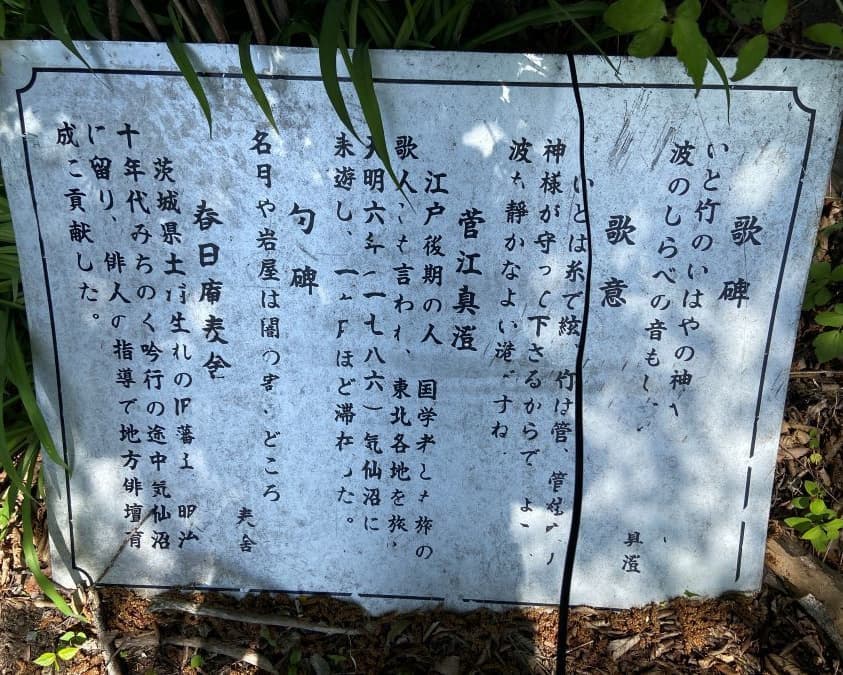 歌碑
いと竹のいはやの神
波のしらべの音も
真澄
歌意
いとは糸で絃 竹は管、管絃
神様が守って下さるからでしょ
波も静かなよい港ですね
菅江真澄
江戸後期の人 国学者とも旅の
歌人とも言われ、東北各地を旅
天明六年(一七八六)気仙沼に
来遊し、一ヶ月ほど滞在した。
句碑
名月や岩屋は闇の害 どころ
麦舎
春日庵麦舎
茨城県土浦生れの旧藩士、明治
十年代みちのく吟行の途中気仙沼
に留り、俳人の指導で地方俳壇育
成に貢献した。